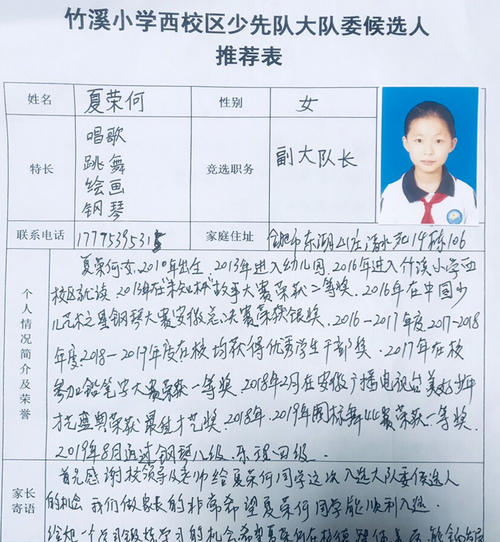 竹溪小学西校区少先队大队委候选人
推荐表
姓名 夏荣何 性别 女
特长 唱歌
跳舞
绘画
钢琴
竞选职务 副大队长
联系电话 家庭住址
个人情况简介及荣誉
夏荣何,女,2010年出生,2013年进入幼儿园,2016年进入竹溪小学西
校区就读 故事大赛荣获二等奖,2016年在中国少
儿艺术之星钢琴大赛安徽总决赛荣获银奖,2016-2017年度,2017-2018
年度,2018-2019年度在校均获得优秀学生干部奖,2017年在校
参加铅笔字大赛荣获一等奖,2018年2月在安徽广播电视台美好少年
才艺盛典荣获最佳才艺奖,2018年,2019年国标舞 大赛荣获一等奖,
2019年8月通过钢琴八级,乐理四级.
家长寄语
首先感谢校领导及老师给夏荣何同学这次入选大队委候选人
的机会,我们做家长的非常希望夏荣何同学能顺利入选
给她一个 锻炼学习的机会希望夏荣何